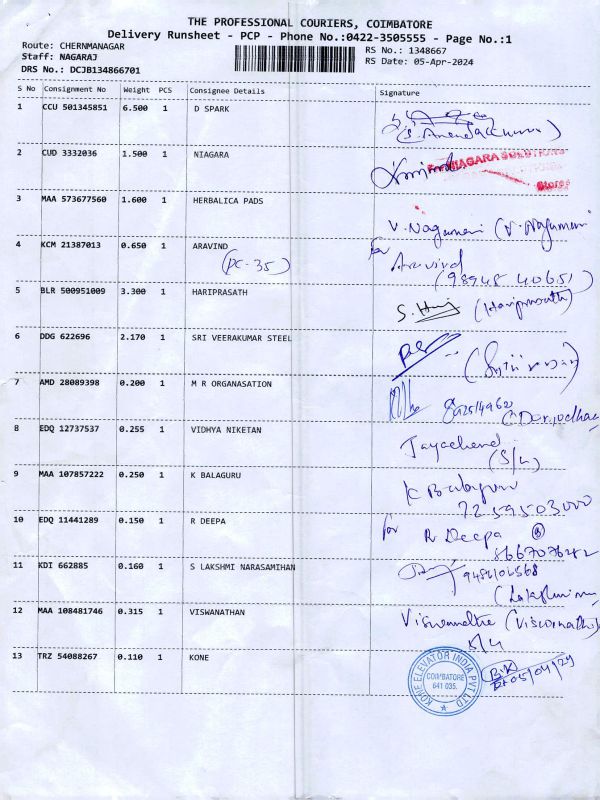 THE PROFESSIONAL COURIERS, COIMBATORE
Delivery Runsheet - PCP - Phone No.:0422-3505555 - Page No.:1
Route: CHERNMANAGAR RS No.: 1348667
Staff: NAGARAJ RS Date: 05-Apr-2024
DRS No.: DCJB134866701
S No Consignment No Weight PCS Consignee Details Signature
1 CCU 501345851 6.500 1 D SPARK
2 CUD 3332036 1.500 1 NIAGARA
NIAGARA SOLUTIONS
Stores
3 MAA 573677560 1.600 1 HERBALICA PADS V. Nagamani (V. Nagamani
4 KCM 21387013 0.650 1 ARAVIND for Aravind
(PC-35) (98948 40651)
5 BLR 500951009 3.300 1 HARIPRASATH S. Hari (Hariprasath)
6 DDG 622696 2.170 1 SRI VEERAKUMAR STEEL
7 AMD 28089398 0.200 1 M R ORGANASATION
8 EDQ 12737537 0.255 1 VIDHYA NIKETAN Jayachand
(S/G)
9 MAA 107857222 0.250 1 K BALAGURU K Balaguru
72 59503000
10 EDQ 11441289 0.150 1 R DEEPA for R Deepa
11 KDI 662885 0.160 1 S LAKSHMI NARASAMIHAN
12 MAA 108481746 0.315 1 VISWANATHAN Viswanatha (Viswanatha)
S/G
13 TRZ 54088267 0.110 1 KONE
KONE ELEVATOR INDIA PVT LTD
COIMBATORE
641 035.
B.K
05/04/24